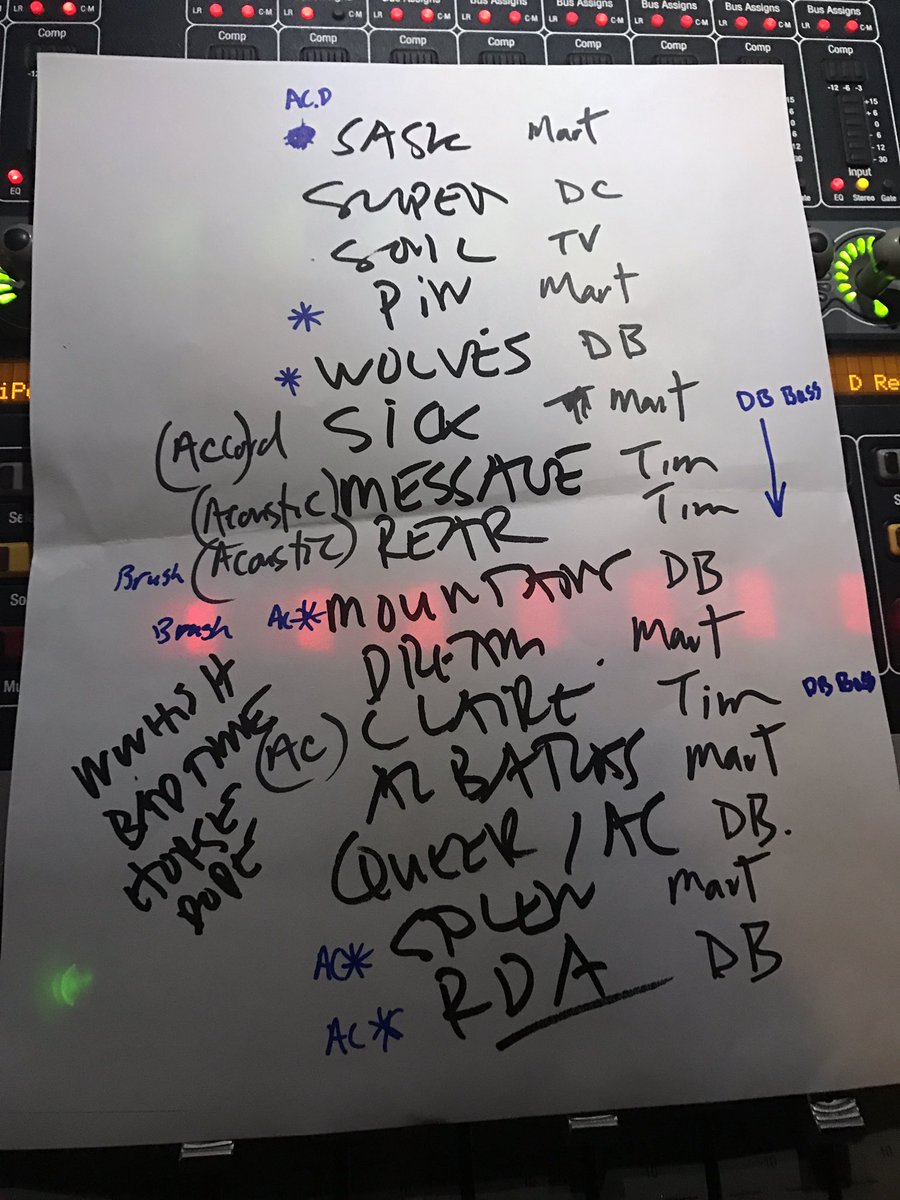 LR C-M LR C-M Bus Assigns LR C-M Bus Assigns LR C-M Bus Assigns LR C-M Bus Assigns LR C-M Bus Assigns LR C-M Bus Assigns LR C-M
Comp Comp Comp Comp Comp Comp Comp Comp
-12 -6 -3
+15
6
0
6
-12
-30
Input
EQ Stereo Gate
EQ
AC.D
SASK Mart
SUPER DC
SONIC TV
* PIN Mart
* WOLVES DB
(Accord) SICK Mart DB Bass
(Acoustic) MESSAGE Tim
Brush (Acoustic) REAR Tim
Brush AC* MOUNTAIN DB
DREAM Mart
(AC) CLAIRE Tim DB Bass
ALBATROSS Mart
QUEER / AC DB.
AC* SPLEN Mart
AC* RDA DB
WWHISH
BAD TIME
HORSE
DOPE
D Re